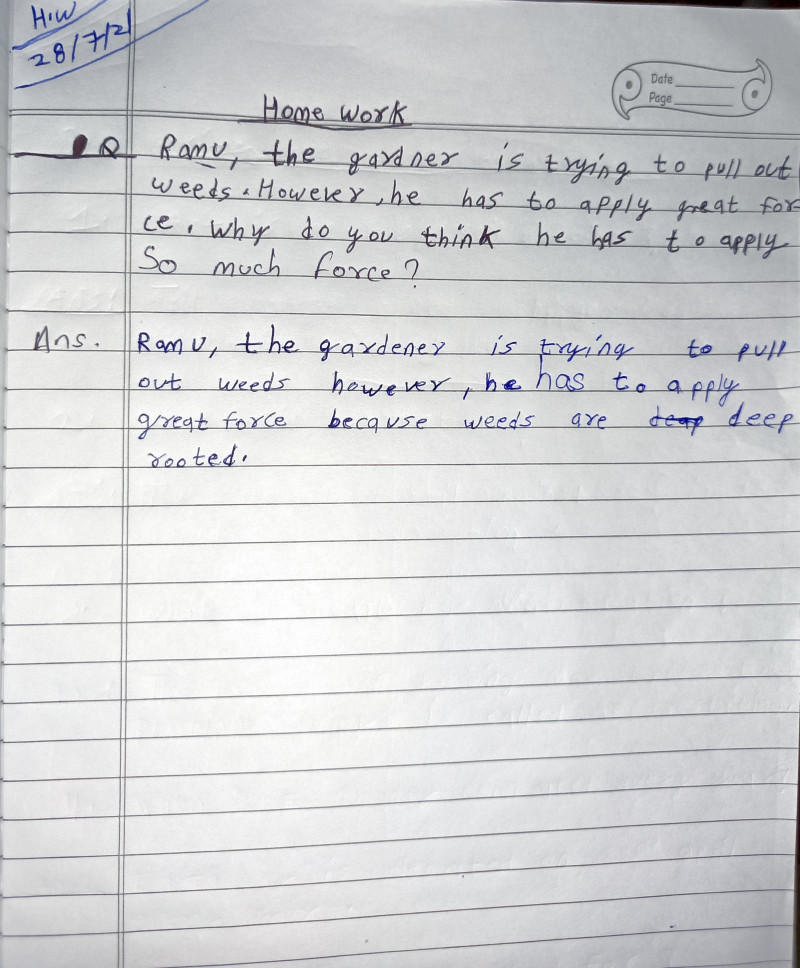 H.W
28/7/21
Date
Page
Home work
Q Ramu, the gardner is trying to pull out
weeds. However, he has to apply great for
ce. Why do you think he has to apply
So much force?
Ans. Ramu, the gardener is trying to pull
out weeds however, he has to apply
great force because weeds are deap deep
rooted.